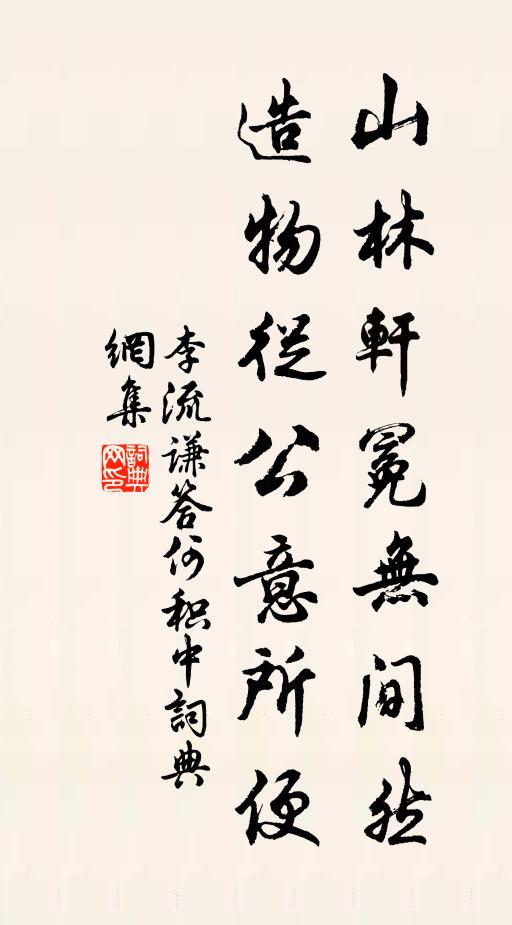 山林軒冕無間然
造物從公意所便
李流谦答何积中詞典
網集
詞典
网印